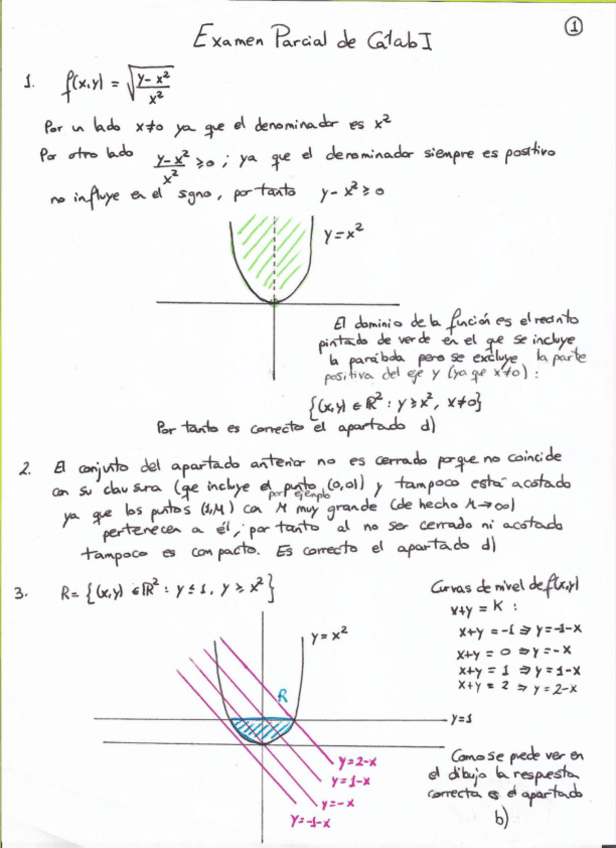 1
Examen Parcial de Catab I
1. f(x,y) = √((y-x²)/x²)
Por un lado x≠0 ya que el denominador es x²
Por otro lado (y-x²)/x² ≥ 0 ; ya que el denominador siempre es positivo
no influye en el signo, por tanto y-x² ≥ 0
y=x²
El dominio de la función es el recinto
pintado de verde en el que se incluye
la parábola pero se excluye la parte
positiva del eje y (ya que x≠0) :
{(x,y) ∈ ℝ² : y ≥ x², x≠0}
Por tanto es correcto el apartado d)
2. El conjunto del apartado anterior no es cerrado porque no coincide
con su clausura (que incluye el punto (0,0)) y tampoco está acotado
por ejemplo
ya que los puntos (1,M) con M muy grande (de hecho M→∞)
pertenecen a él, por tanto al no ser cerrado ni acotado
tampoco es compacto. Es correcto el apartado d)
3. R = {(x,y) ∈ ℝ² : y ≤ 1, y ≥ x²}
Curvas de nivel de f(x,y)
x+y = K :
x+y = -1 ⇒ y=-1-x
x+y = 0 ⇒ y=-x
x+y = 1 ⇒ y=1-x
x+y = 2 ⇒ y=2-x
y=x²
R
y=1
y=2-x
y=1-x
y=-x
y=-1-x
Como se puede ver en
el dibujo la respuesta
correcta es el apartado
b)